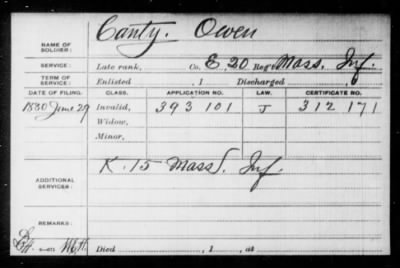 Canty, Owen
NAME OF SOLDIER:
SERVICE: Late rank, Co. E, 20 Reg't Mass. Inf.
TERM OF SERVICE: Enlisted , 1 Discharged , 1
DATE OF FILING. CLASS. APPLICATION NO. LAW. CERTIFICATE NO.
1880 June 29 Invalid, 393 101 J 312 171
Widow,
Minor,
K. 15 Mass. Inf.
ADDITIONAL SERVICES:
REMARKS:
Died , 1 , at